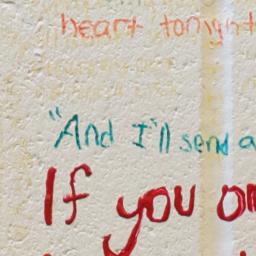 heart tonight
"And I'll send a
If you on